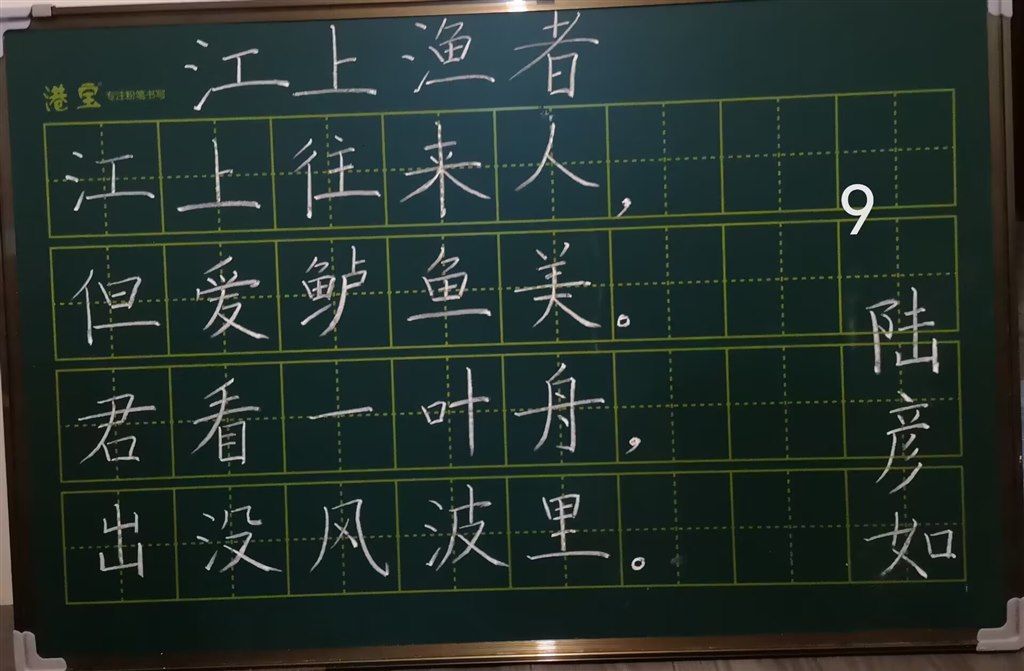 江上渔者
港宝 专注粉笔书写
江上往来人，
9
但爱鲈鱼美。
君看一叶舟，
出没风波里。
陆彦如